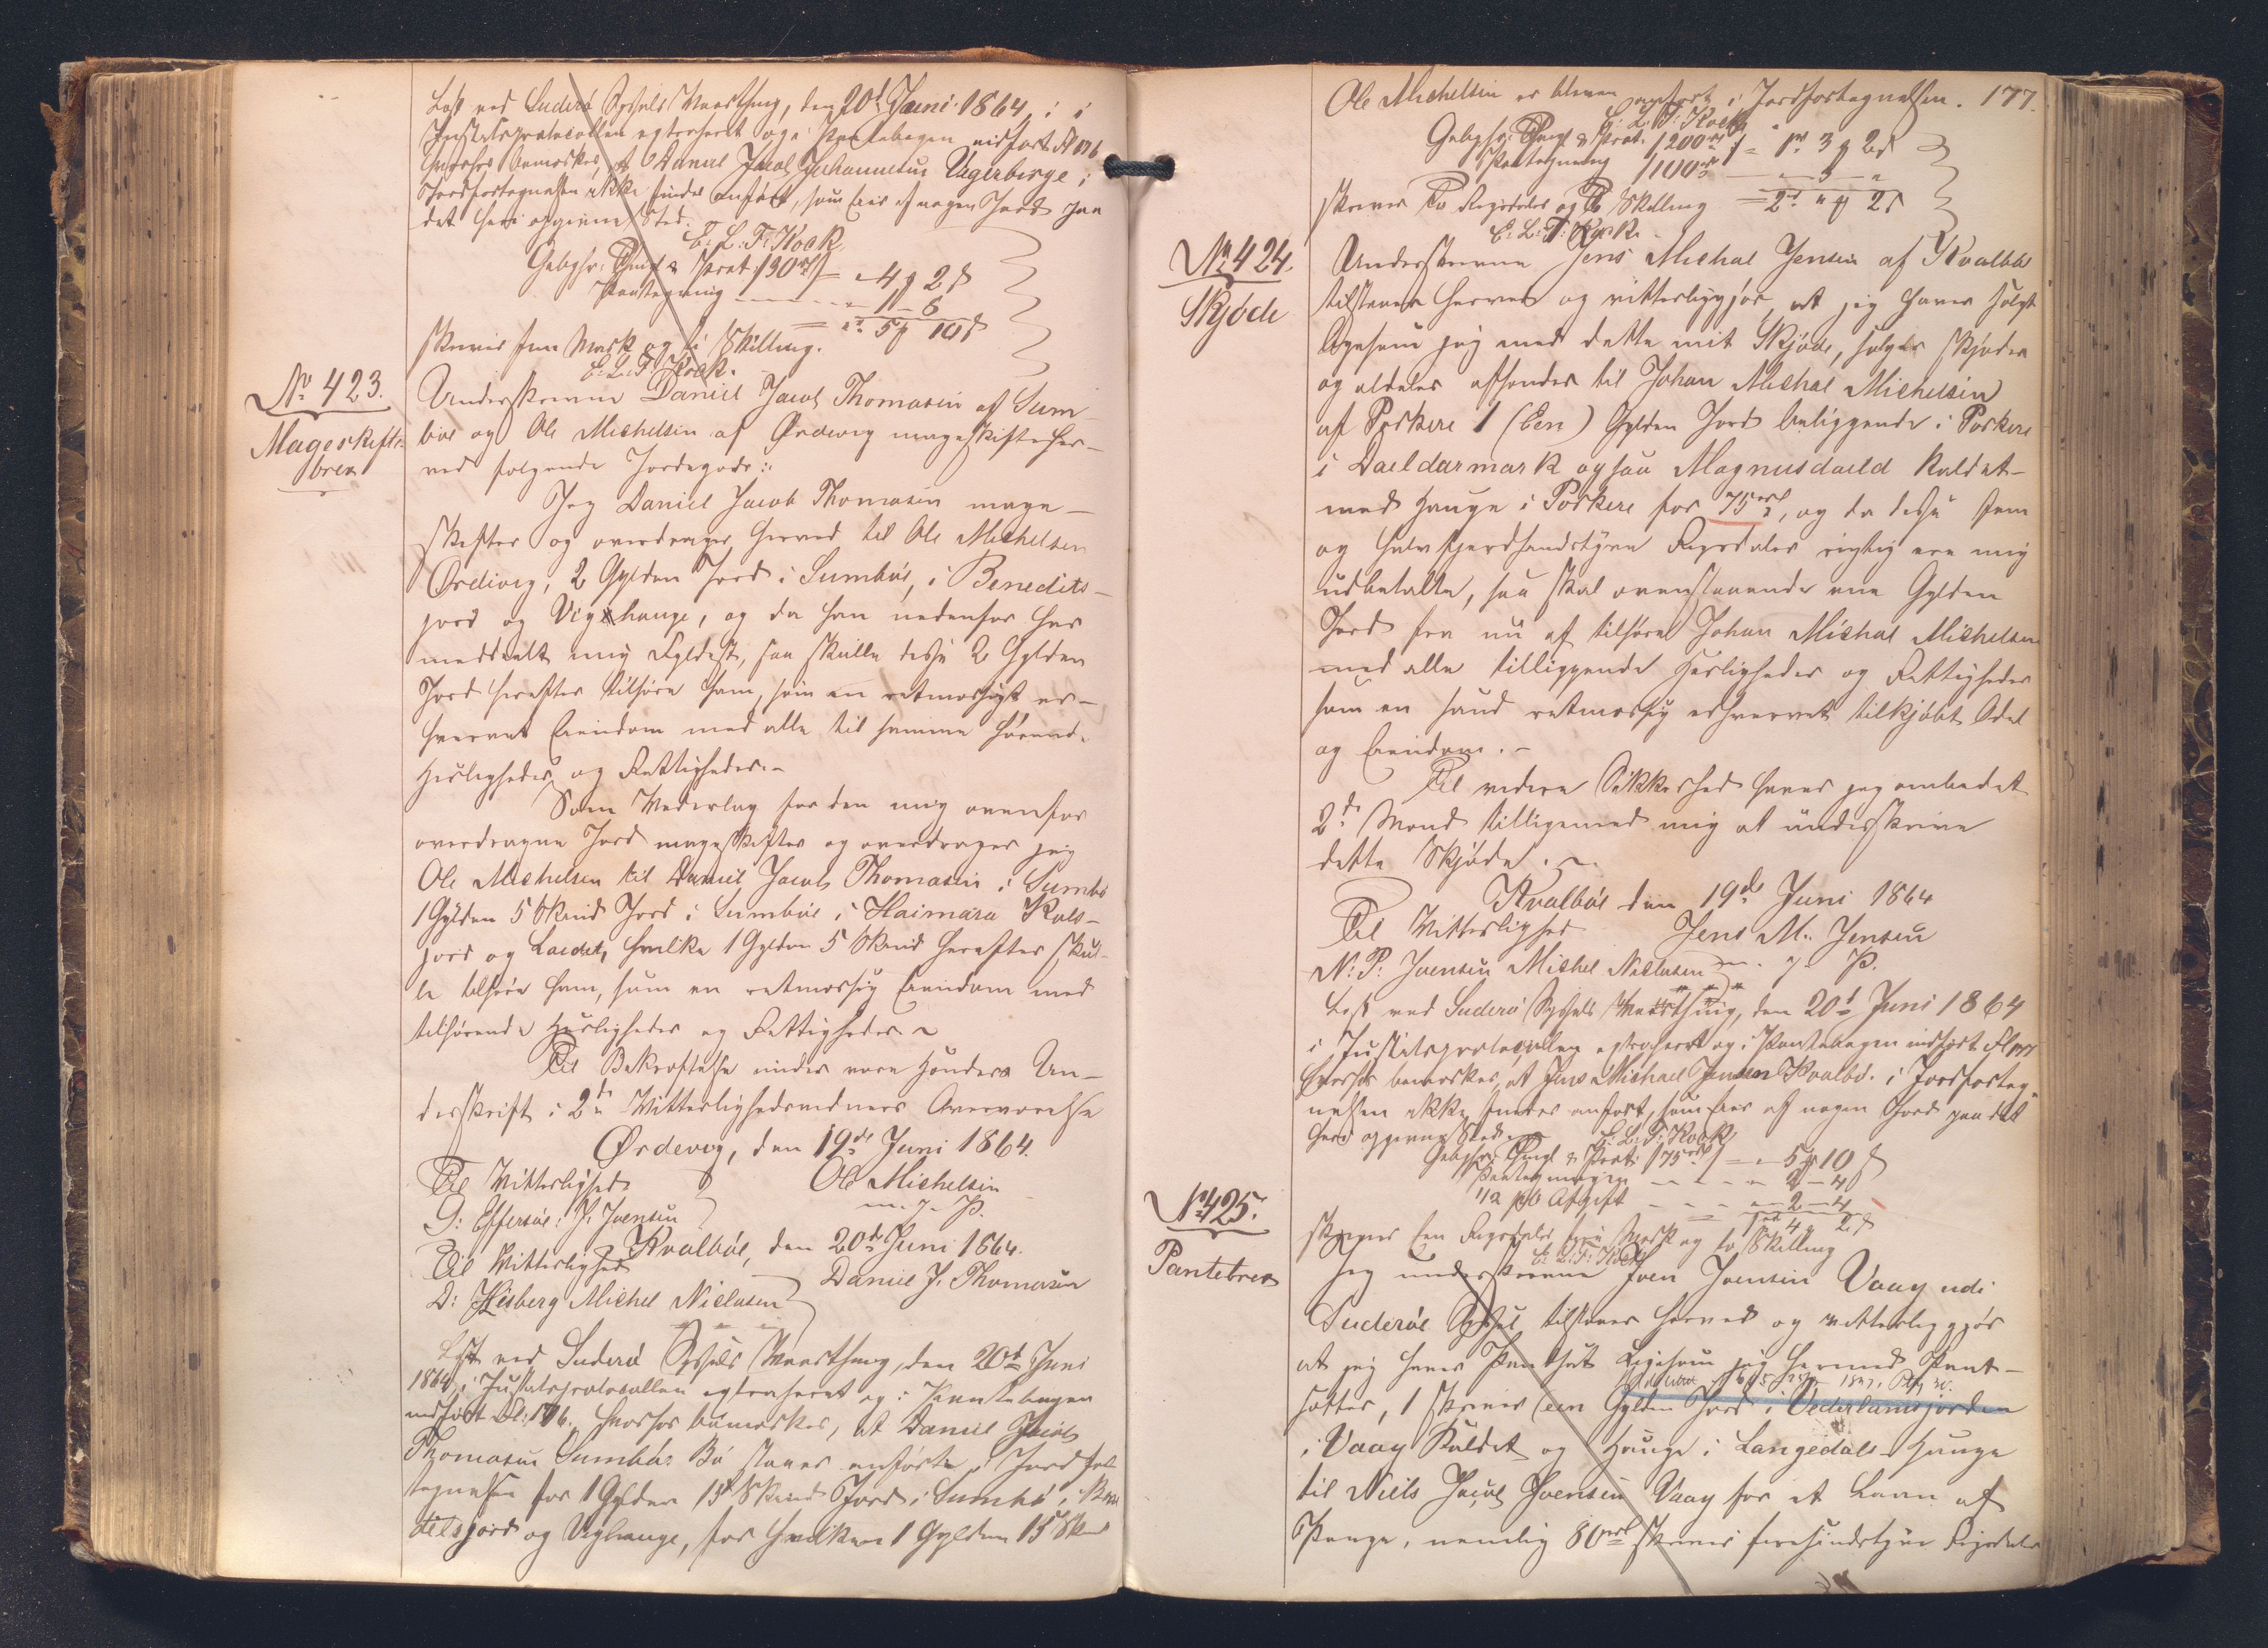 Læst ved Suderø Syssels Vaarthing, den 20d Juni 1864, i
Justitsprotocollen extraheret og i Pantebogen indført Fl 176
hvorhos bemærkes, at Daniel Jacob Johannesen Vagerberge i
Jordfortegnelsen ikke findes anført, som Eier af nogen Jord paa
det heri opgivne Sted.
E: L: F: Kock
Gebyhr: Thingl & Prot: /30rd/ = „ 4 ₰ 2 s
Paategning „ 1 – 8
= „ 5 ₰ 10 s
skriver fem Mark og ti Skilling.
E: L: F: Kock.
No 423.
Mageskifte-
brev
Underskrevne Daniel Jacob Thomasen af Sum
böe og Ole Michelsen af Ördevig mageskifte her-
ved følgende Jordegods:
Jeg Daniel Jacob Thomasen mage-
skifter og overdrager herved til Ole Michelsen
Ördivig, 2 Gylden Jord i Sumböe, i Benedits-
jord og Vighauge, og da han nedenfor har
meddeelt mig Fyldest, saa skulle disse 2 Gylden
Jord herefter tilhøre ham, som en retmæssigt er-
hvervet Eiendom med alle til samme hørende
Herligheder og Rettigheder.-
Som Vederlag for den mig ovenfor
overdragne Jord mageskifter og overdrager jeg
Ole Michelsen til Daniel Jacob Thomasen i Sumbö
1 Gylden 5 Skind Jord i Sumböe i Haimara Kuls-
jord og Laidet, hvilke 1 Gylden 5 Skind herefter skul-
le tilhøre ham, som en retmæssig Eiendom med
tilhørende Herligheder og Rettigheder.
Til Bekræftelse under vore Hænders Un-
derskrift i 2de Vitterlighedsvidners Overværelse
Ördevig, den 19de Juni 1864.
Til Vitterlighed Ole Michelsen
D: Effersöe: J: Joensen m. f. P.
Kvalböe, den 20de Juni 1864.
Til Vitterlighed Daniel J. Thomasen
D: Hisberg Michel Niclasen
Læst ved Suderø Syssels Vaarthing, den 20d Juni
1864, i Justitsprotocollen extraheret og i Pantebogen
indført Fl: 176. hvorhos bemærkes, at Daniel Jacob
Thomasen Sumbös Bö staaer anført i Jordfor
tegnelsen for 1 Gylden 15 Skind Jord i Sumbö, i Bene
ditsjord og Vighauge, for hvilken 1 Gylden 15 Skind
177.
Ole Michelsen er bleven anført i Jordfortegnelsen.
E: L: F: Kock
Gebyhr: Thingl & Prot: /200rd/ = 1rd 3 ₰ 2 s
Paategning /100rd — „ 3 – „
= 2rd „ ₰ 2 s
skriver To Rigsdaler og To Skilling
E: L: F: Kock.
No 424.
Skjøde
Underskrevne Jens Michal Jensen af Kvalböe
tilstaaer herved og vitterliggjör, at jeg haver solgt
ligesom jeg med dette mit Skjøde, sælger skjøder
og aldeles afhænder til Johan Michal Michelsen
af Porkere 1 (Een) Gylden Jord beliggende i Porkere
i Daeldarmark ogsaa Magnusdaeld kaldet
med Hauge i Porkere for 75rd, og da disse fem
og halvfjerdsindstyve Rigsdaler rigtig ere mig
udbetalte, saa skal ovenstaaende ene Gylden
Jord fra nu af tilhøre Johan Michal Michelsen
med alle tilliggende Herligheder og Rettigheder
som en sand retmæssig erhvervet tilkjöbt Odel
og Eiendom. -
Til videre Sikkerhed haver jeg ombedet
2de Mænd tilligemed mig at underskrive
dette Skjøde.
Kvalböe den 19de Juni 1864
Til Vitterlighed Jens M. Jensen
N: P: Joensen Michel Niclasen m. f. P.
Læst ved Suderø Syssels Vaarthing, den 20d Juni 1864
i Justitsprotocollen extraheret og i Pantebogen indført Fl 177
hvorhos bemærkes, at Jens Michael Jensen Kvalbö i Jordforteg-
nelsen ikke findes anført, som Eier af nogen Jord paa det
heri opgivne Sted.
E: L: F: Kock
Gebyhr: Thingl & Prot: /75rd/ = „ 5 ₰ 10 s
Paategningen „ 2 – 4 s
1/2 pCt Afgift „ 2 – 4
= 1rd 4 ₰ 2 s
skriver Een Rigsdaler fire Mark og to Skilling
E: L: F: Kock
No 425.
Pantebrev
Jeg underskrevne Joen Joensen Vaag udi
Suderöe Syssel tilstaaer herved og vitterliggjör
at jeg haver Pantsat ligesom jeg hermed Pant-
sætter, 1 skriver een Gylden Jord i Vederlamsjorden
i Vaag kaldet og Hauge i Langedals-Hauge
til Niels Jacob Joensen Vaag for et Laan af
Penge, nemlig 80rd skriver firesindstyve Rigsdaler